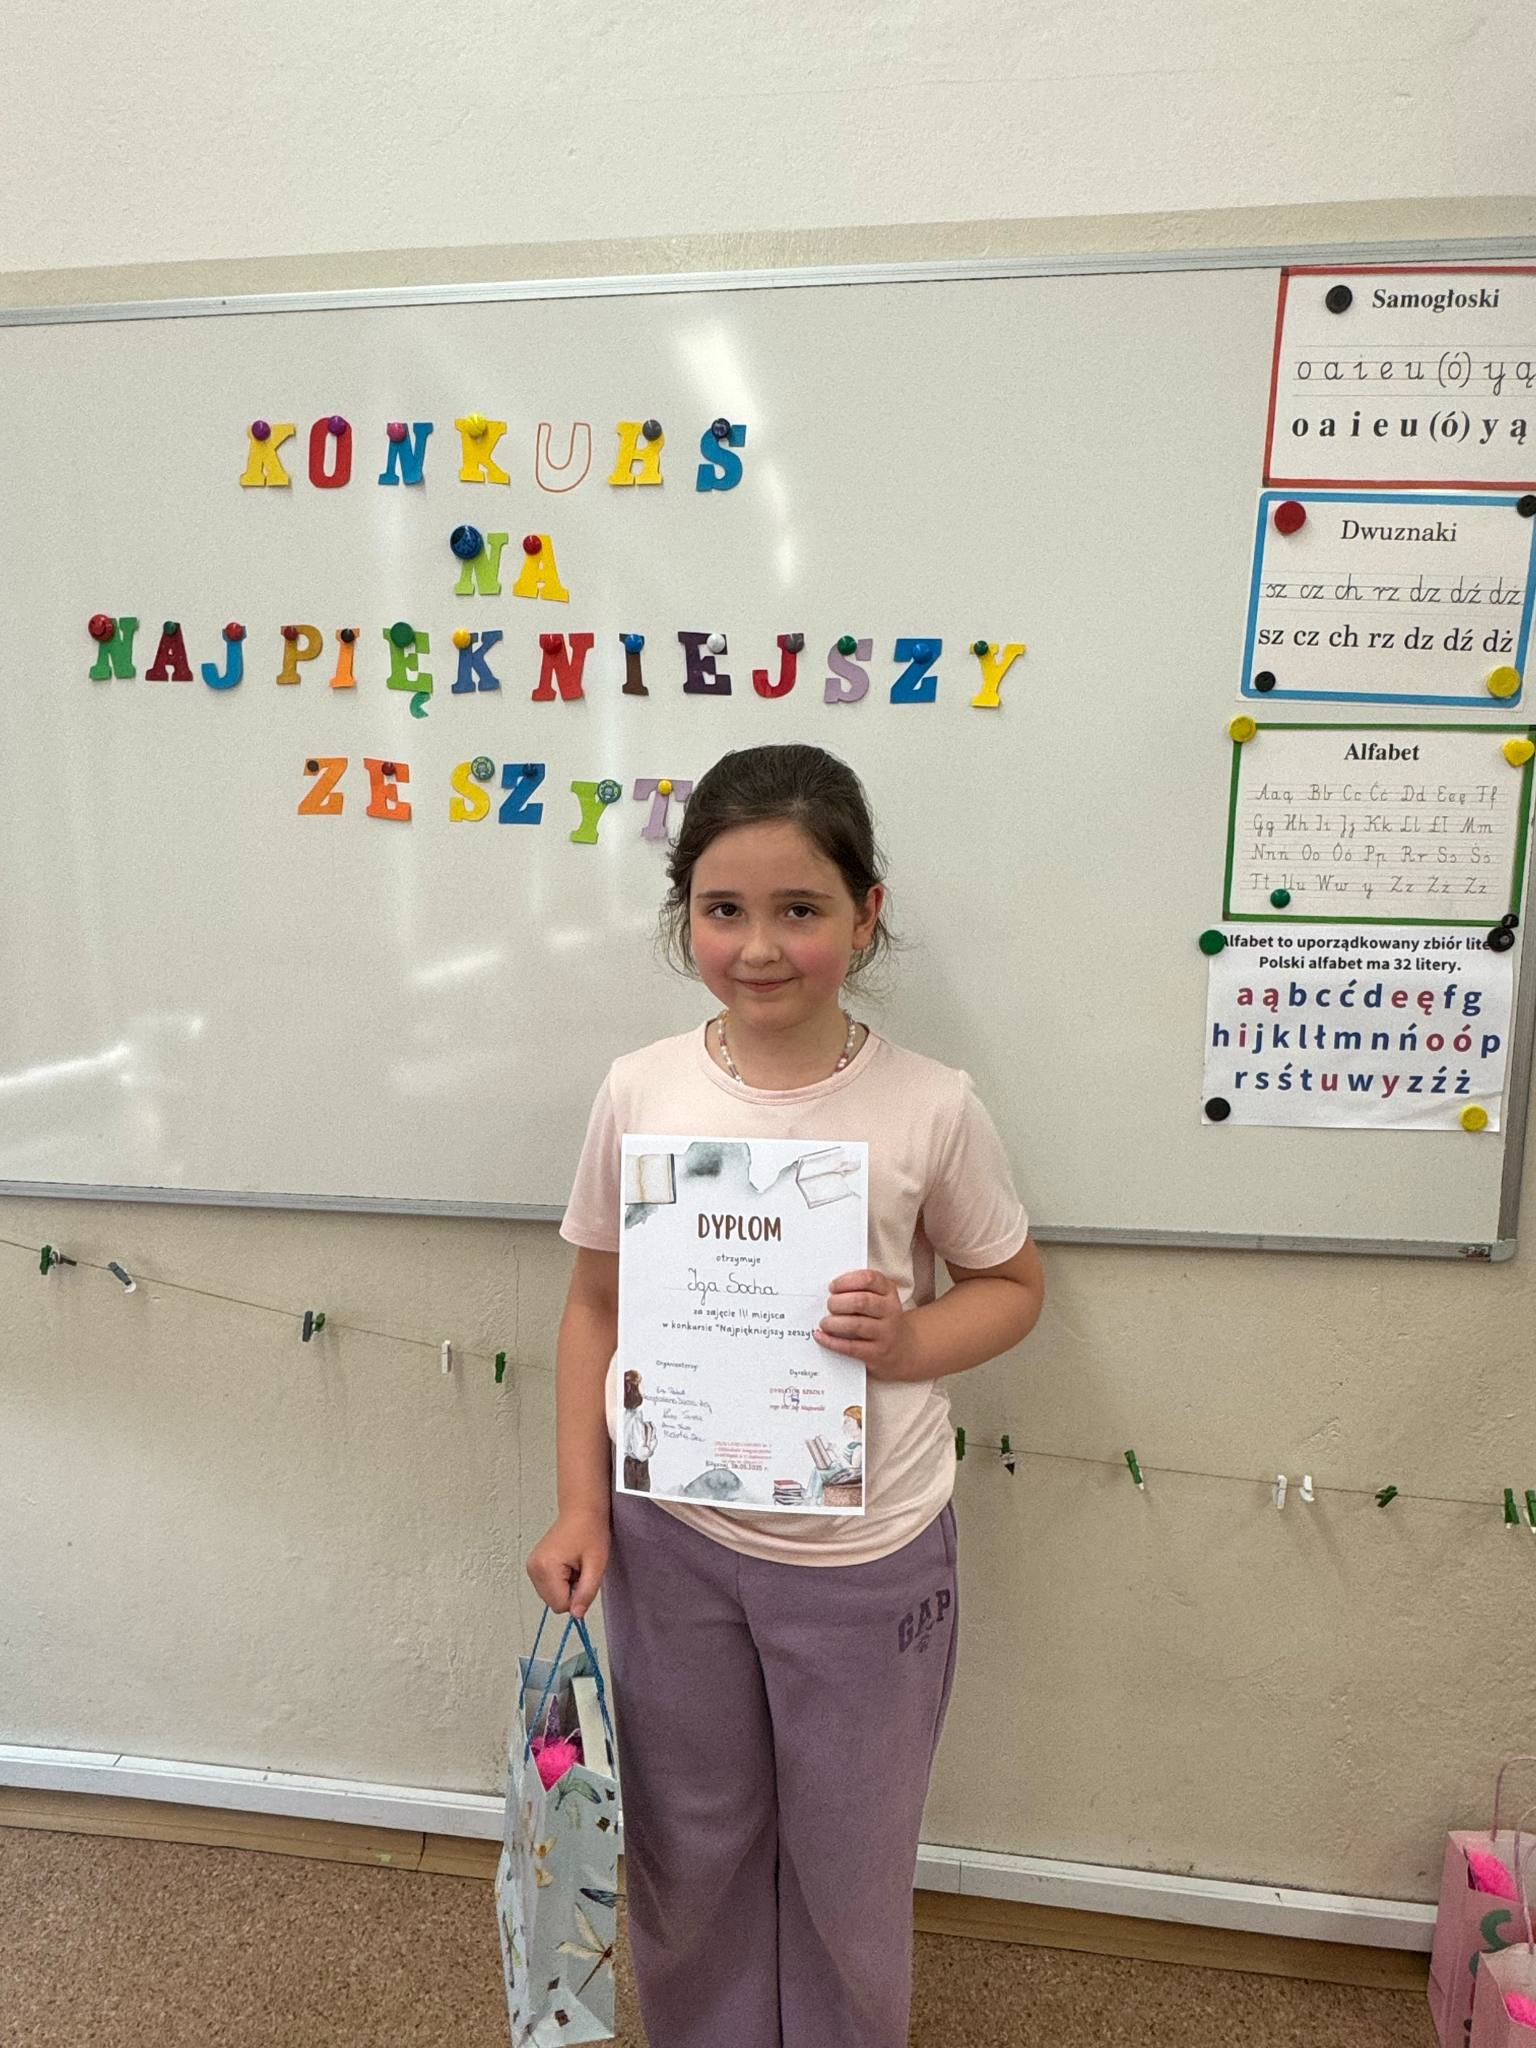 KONKURS
NA
NAJPIĘKNIEJSZY
ZESZYT
Samogłoski
o a i e u (ó) y ą
o a i e u (ó) y ą
Dwuznaki
sz cz ch rz dz dź dż
sz cz ch rz dz dź dż
Alfabet
Aaą Bb Cc Ćć Dd Eeę Ff
Gg Hh Ii Jj Kk Ll Łł Mm
Nnń Oo Óó Pp Rr Ss Śś
Tt Uu Ww y Zz Źź Żż
Alfabet to uporządkowany zbiór lite
Polski alfabet ma 32 litery.
a ą b c ć d e ę f g
h i j k l ł m n ń o ó p
r s ś t u w y z ź ż
DYPLOM
otrzymuje
Iga Socha
za zajęcie III miejsca
w konkursie "Najpiękniejszy zeszyt"
Organizatorzy:
Dyrekcja:
DYREKTOR SZKOŁY
GAP